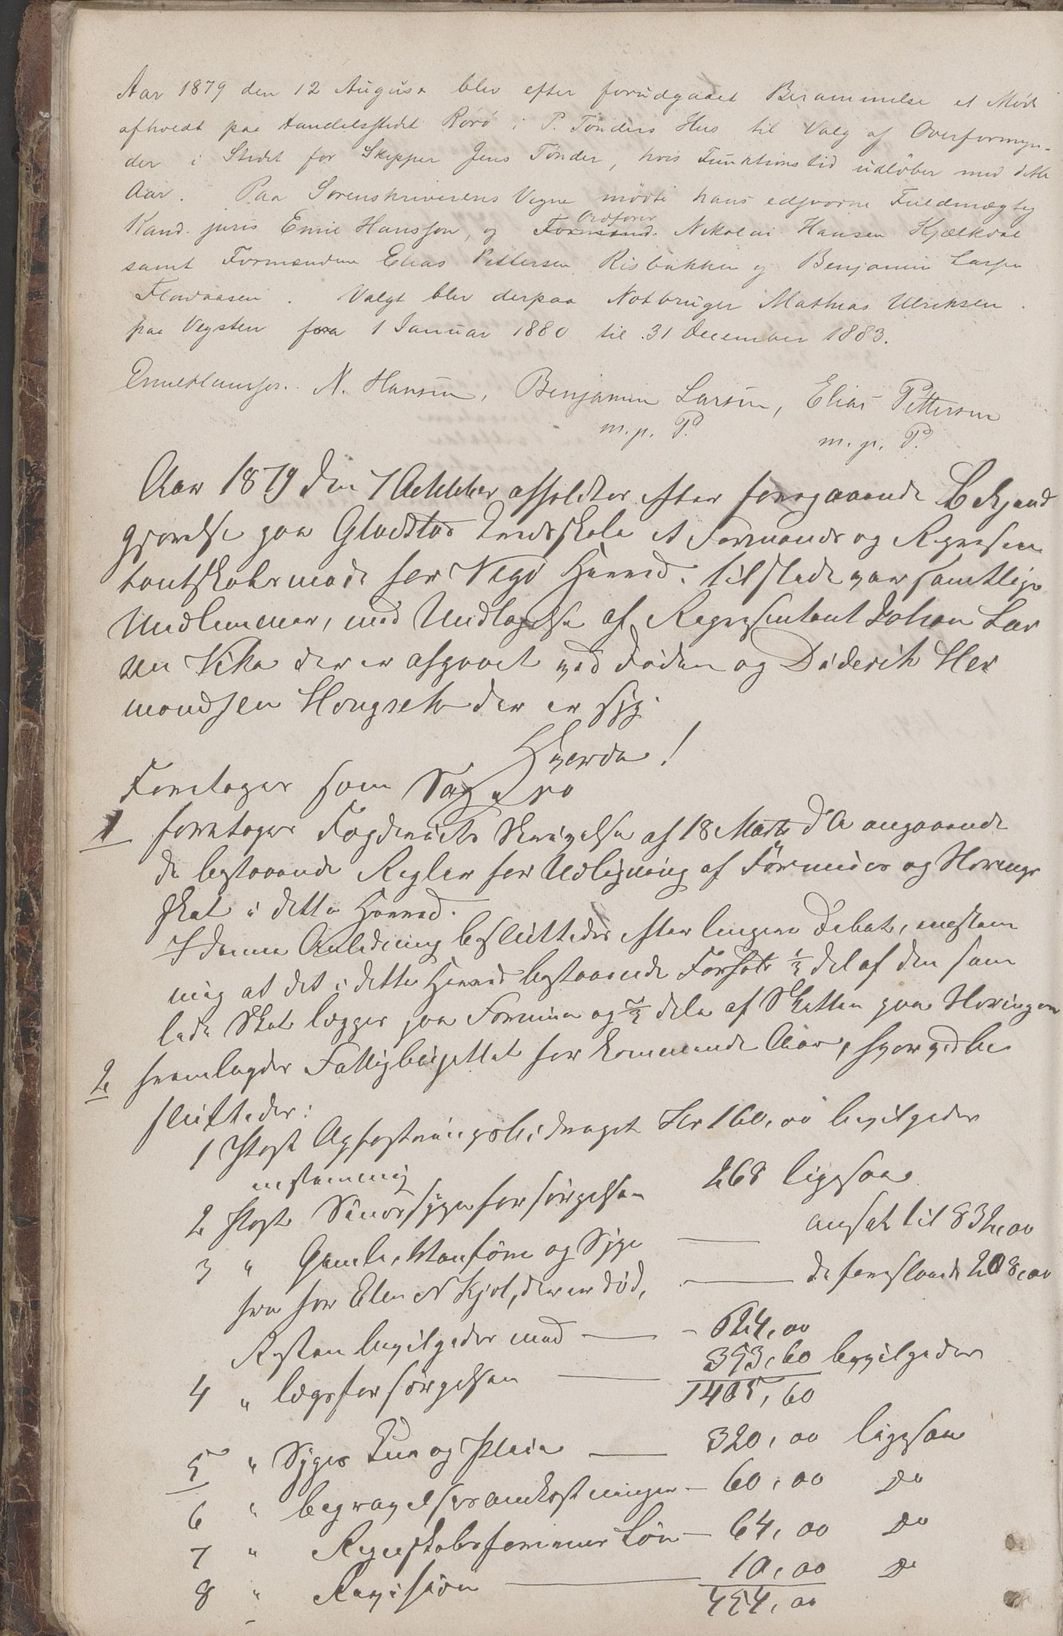 Aar 1879 den 12 August blev efter forudgaaet Berammelse et Møde
afholdt paa Handelsstedet Rørø i P. Tønders Hus til Valg af Overformyn-
der i Stedet for Skipper Jens Tønder, hvis Funktionstid udløber med dette
Aar. Paa Sorenskriverens Vegne mødte hans edsvorne Fuldmægtig
Kand. juris Emil Hansson, og Formand. Ordfører Nikolai Hansen Kjælkdal
samt Formændene Elias Pettersen Risbakken og Benjamin Larsen
Flovaasen. Valgt blev derpaa Notbruger Mathias Ulriksen
paa Vegsten fra 1 Januar 1880 til 31 December 1883.
Emil Hansson. N. Hansen, Benjamin Larsen, Elias Pettersen
m. p. P. m. p. P.
Aar 1879 den 7 Oktober afholdtes efter foregaaende Bekjendt
gjørelse paa Gladstad Kredsskole et Formands og Represen
tantskabsmøde for Vegø Herred. tilstede var samtlige
Medlemmer, med Undtagelse af Representant Johan Lar
sen Vika der er afgaaet ved Døden og Diderik Her
mandsen Hongseth der er syg.
Hvorda!
Foretages som Sag No
1 foretages Fogderiets Skrivelse af 18 Marts d A angaaende
de bestaaende Regler for Udligning af Formues og Nærings
skat i dette Herred.
I denne Anledning besluttedes efter lengere Debat, enstem
mig at det i dette Herred bestaaende Forhold 1/3 del af den sam
lede Skat lægges paa Formue og 2/3 dele af Skatten paa Næringen
2 fremlagdes Fattigbudgettet for kommende Aar, hvorved be
sluttedes:
1 Post Opfostringsbidraget Kr 160,00 bevilgedes
enstemmig
2 Post Sindssygeforsørgelsen 268 ligesaa
3 " Gamle, Vanføre og Syge — ansat til 832,00
fra for Elen N Kjøl, der er død, — de foreslaaede 208,00
Resten bevilgedes med — 624,00
4 " lægsforsørgelsen — 353,60 bevilgedes
1405,60
5 " Syges Kur og Pleie — 320,00 ligesaa
6 " begravelsesomkostninger — 60,00 do
7 " Regnskabsførerens Løn — 64,00 do
8 " Revision — 10,00 do
454,00